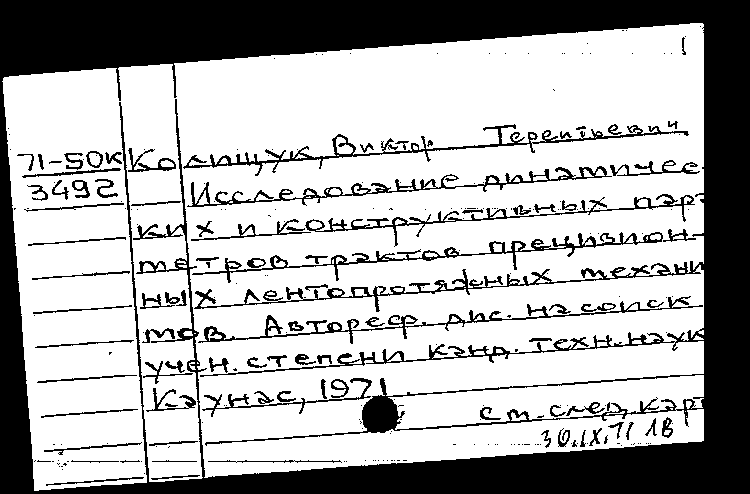 71-50к Колищук, Виктор Терентьевич
3492 Исследование динамичес-
ких и конструктивных пара
метров трактов прецизион-
ных лентопротяжных механи
мов. Автореф. дис. на соиск
учен. степени канд. техн. наук
Каунас, 1971.
см. след. карт
30.IX.71 1В